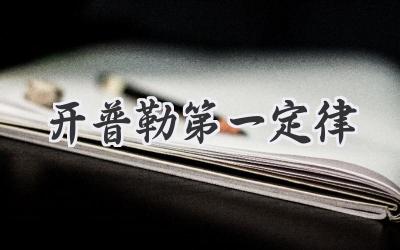 开普勒第一定律